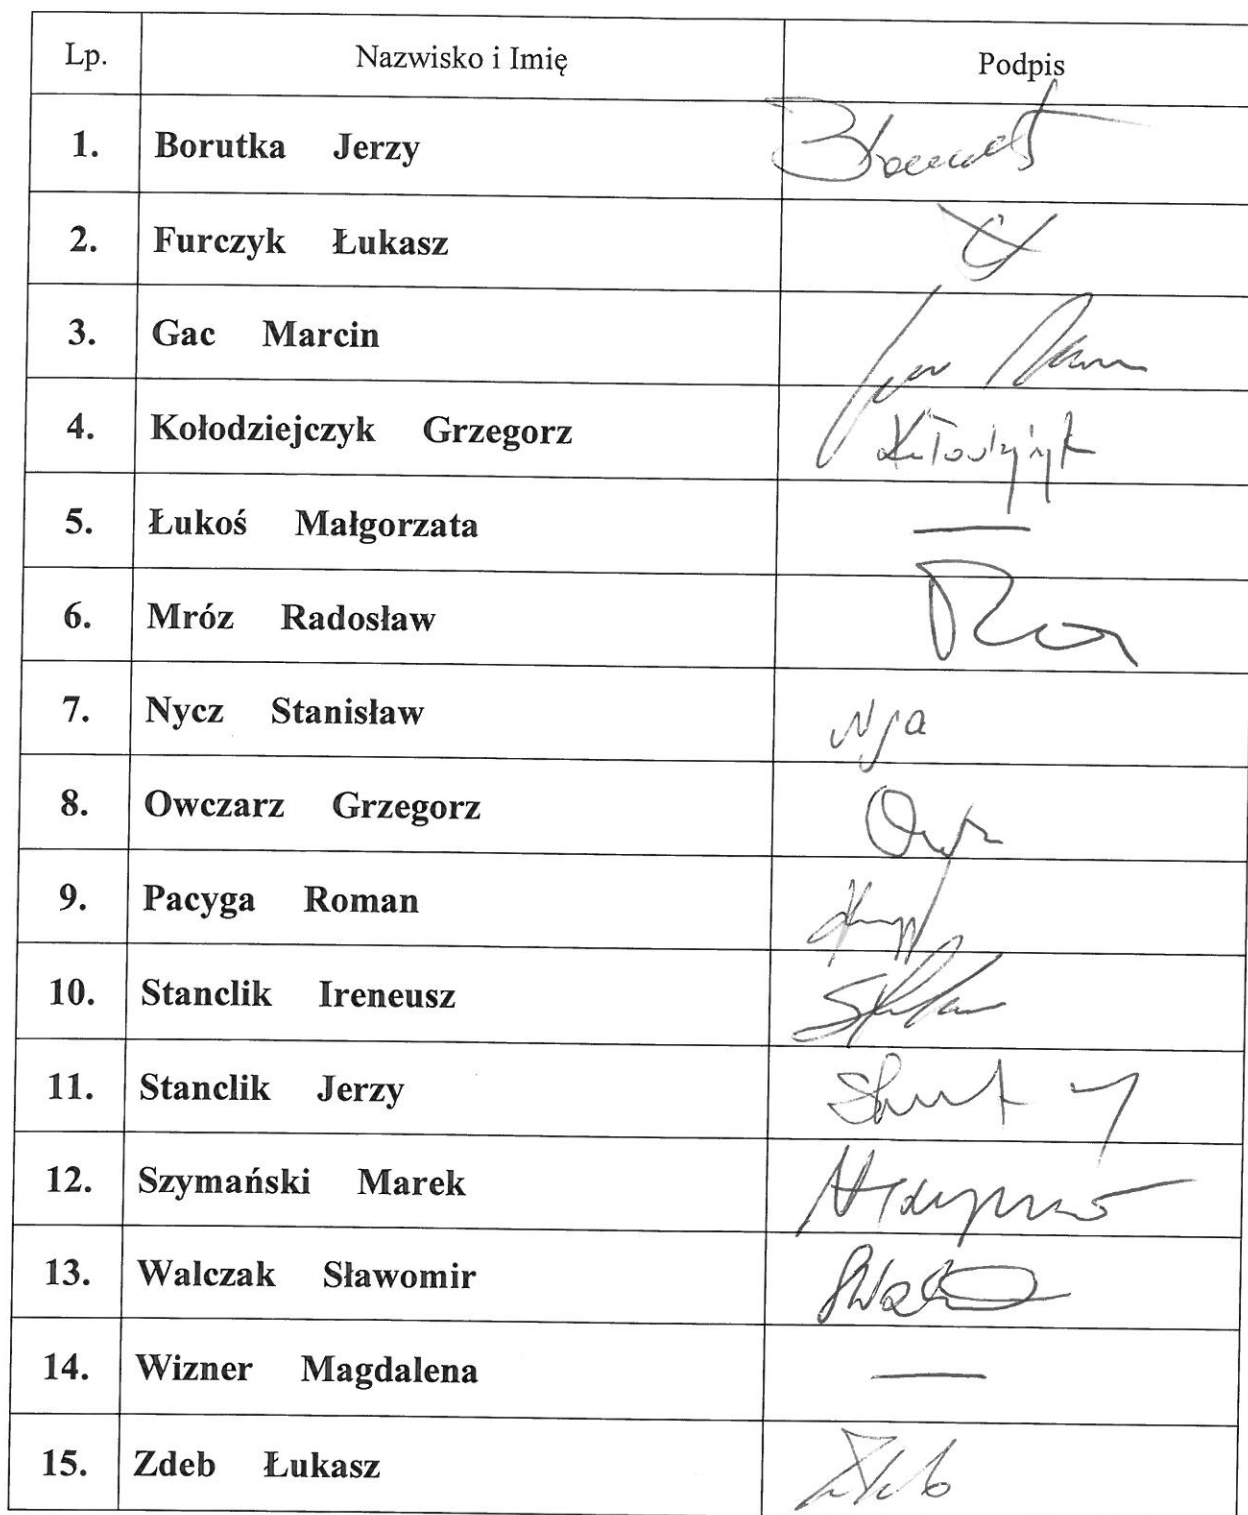 Lp. Nazwisko i Imię Podpis
1. Borutka Jerzy
2. Furczyk Łukasz
3. Gac Marcin
4. Kołodziejczyk Grzegorz
5. Łukoś Małgorzata —
6. Mróz Radosław
7. Nycz Stanisław
8. Owczarz Grzegorz
9. Pacyga Roman
10. Stanclik Ireneusz
11. Stanclik Jerzy
12. Szymański Marek
13. Walczak Sławomir
14. Wizner Magdalena —
15. Zdeb Łukasz